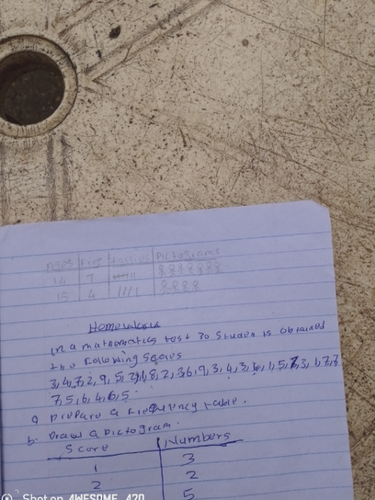 Ages Freq Tallies Pictograms
14 7
15 4 ////
Homework
In a mathematics test 30 Student is obtained
the following Scores
3, 4, 7, 2, 9, 5, 8, 2, 3, 6, 9, 3, 4, 3, 1, 5, 7, 3, 1, 7, 7
7, 5, 6, 4, 6, 5
a prepare a Frequency table.
b. Draw a pictogram.
Score Numbers
1 3
2 2
5
Shot on AWESOME A70